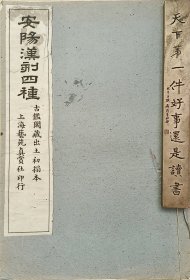 安陽漢刻四種
古鑑閣藏出土初搨本
上海藝苑真賞社印行
天下第一件好事還是讀書